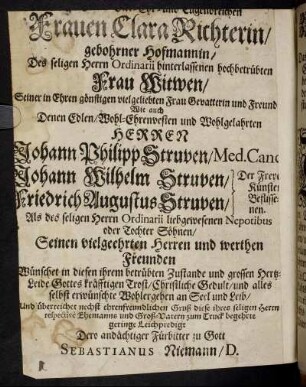 und Tugendreichen
Frauen Clara Richterin/
gebohrner Hofmannin/
Des seligen Herrn Ordinarii hinterlassenen hochbetrübten
Frau Witwen/
Seiner in Ehren günstigen vielgeliebten Frau Gevatterin und Freund
Wie auch
Denen Edlen/Wohl-Ehrenvesten und Wohlgelahrten
HERREN
Johann Philipp Struven/Med.Cand
Johann Wilhelm Struven/
Friedrich Augustus Struven/
Der Freyen
Künste
Beflisse-
nen.
Als des seligen Herrn Ordinarii liebgewesenen Nepotibus
oder Tochter Söhnen/
Seinen vielgeehrten Herren und werthen
Freunden
Wünschet in diesen ihrem betrübten Zustande und grossen Hertz-
Leide Gottes kräfftigen Trost/Christliche Gedult/und alles
selbst erwünschte Wohlergehen an Seel und Leib/
Und überreichet nechst ehrenfreundlichen Gruß diese ihres seligen Herrn
respective Ehemanns und Groß-Vatern zum Truck begehrte
geringe Leichpredigt
Dero andächtiger Fürbitter zu Gott
SEBASTIANUS Niemann/D.